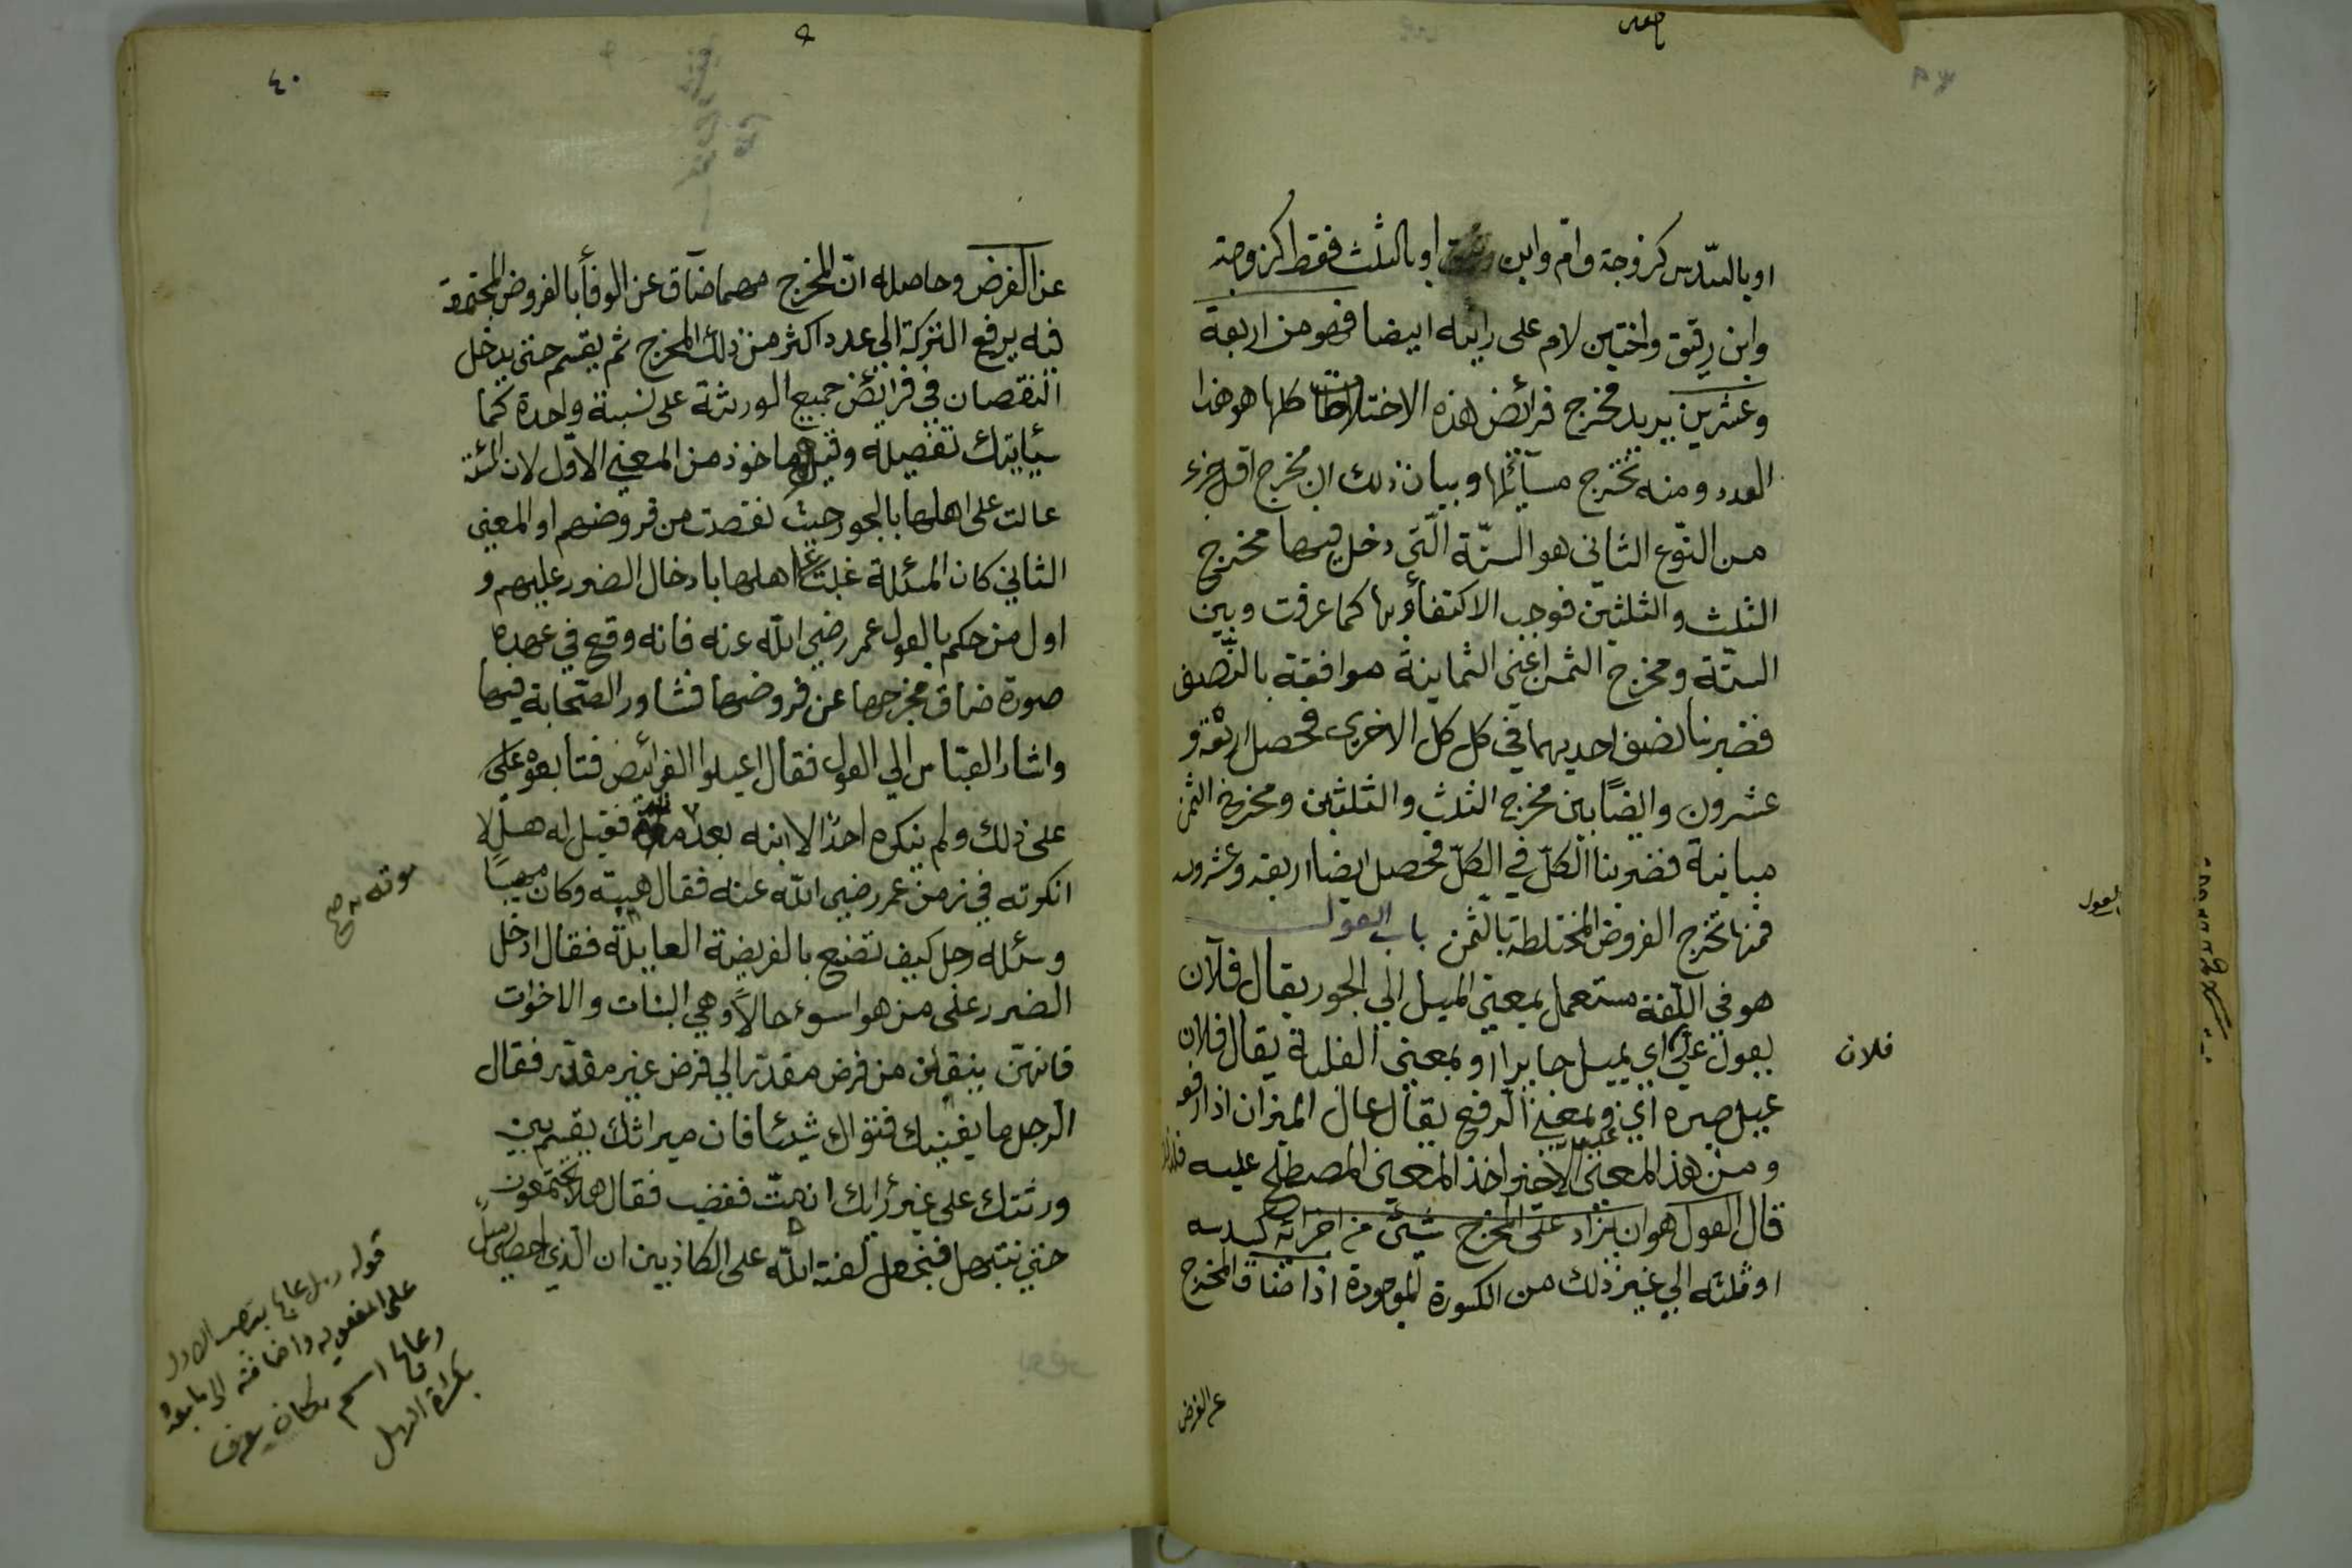 او بالسّدس كزوجة وام وابن رقيق او بالثلث فقط كزوجة
وابن رقيق واختين لام على رايه ايضا فهو من اربعة
وعشرين يريد مخرج فرائض هذه الاختلاطات كلها هو هذا
العدد ومنه تخرج مسائلها وبيان ذلك ان مخرج اقل جزء
من النوع الثاني هو الستّة الّتي دخل فيها مخرج
الثلث والثلثين فوجب الاكتفاء بها كما عرفت وبين
الستّة ومخرج الثمن اعني الثمانية موافقة بالنّصف
فضربنا نصف احديهما في كل الاخرى فحصل اربعة و
عشرون وايضًا بين مخرج الثلث والثلثين ومخرج الثمن
مباينة فضربنا الكلّ في الكلّ فحصل ايضا اربعة وعشرون
فمنها تخرج الفروض المختلطة بالثمن باب العول
هو في اللّغة مستعمل بمعنى الميل الى الجور يقال فلان
يعول عليّ اي يميل جايرا او بمعنى الغلبة يقال فلان
عيل صبره اي وبمعنى الرفع يقال عال الميزان اذا رفعه
ومن هذا المعنى الاخير اخذ المعنى المصطلح عليه فلذلك
قال العول هو ان يزاد على المخرج شيئ من اجزائه كسدسه
او ثلثه الي غير ذلك من الكسورة الموجودة اذا ضاق المخرج
عن الفرض
فلان
العول
٤٠
عن الفرض وحاصله انّ المخرج مهما ضاق عن الوفأ بالفروض المجتمعة
فيه يرفع التركة الي عدد اكثر من ذلك المخرج ثم يقسم حتى يدخل
النقصان في فرائض جميع الورثة على نسبة واحدة كما
سيأيتك تفصيله وقيل ماخوذ من المعنى الاوّل لان المسئلة
عالت على اهلها بالجور حيث نقصت من فروضهم او المعنى
الثاني كان المسئلة غلبت اهلها بادخال الضرر عليهم و
اول من حكم بالعول عمر رضي اللّه عنه فانه وقع في عهده
صورة ضاق مخرجها عن فروضها فشاور الصّحابة فيها
واشار العبّاس الي العول فقال اعيلوا الفرائض فتابعوه على
على ذلك ولم ينكره احدٌ الا ابنه بعد فقيل له هلّا
انكرته في زمن عمر رضي اللّه عنه فقال هيبته وكان مهيبًا
وسئله رجل كيف تصنع بالفريضة العايلة فقال ادخل
الضرر على من هو اسوء حالًا وهي البنات والاخوات
فانهنّ ينقلن من فرض مقدّر الي فرض غير مقدّر فقال
الرجل ما يغنيك فتواك شيئا فان ميراثك يقسم بين
ورثتك على غير رأيك فغضب فقال هلا تجتمعون
حتي نبتهل فنجعل لعنة اللّه على الكاذبين ان الّذي احصى رمل
موته صح
قوله رمل عالج بنصب الاول
على المفعوليه واضافته الى ما بعده
وعالج اسم مكان يعرف
بكثرة الرمل